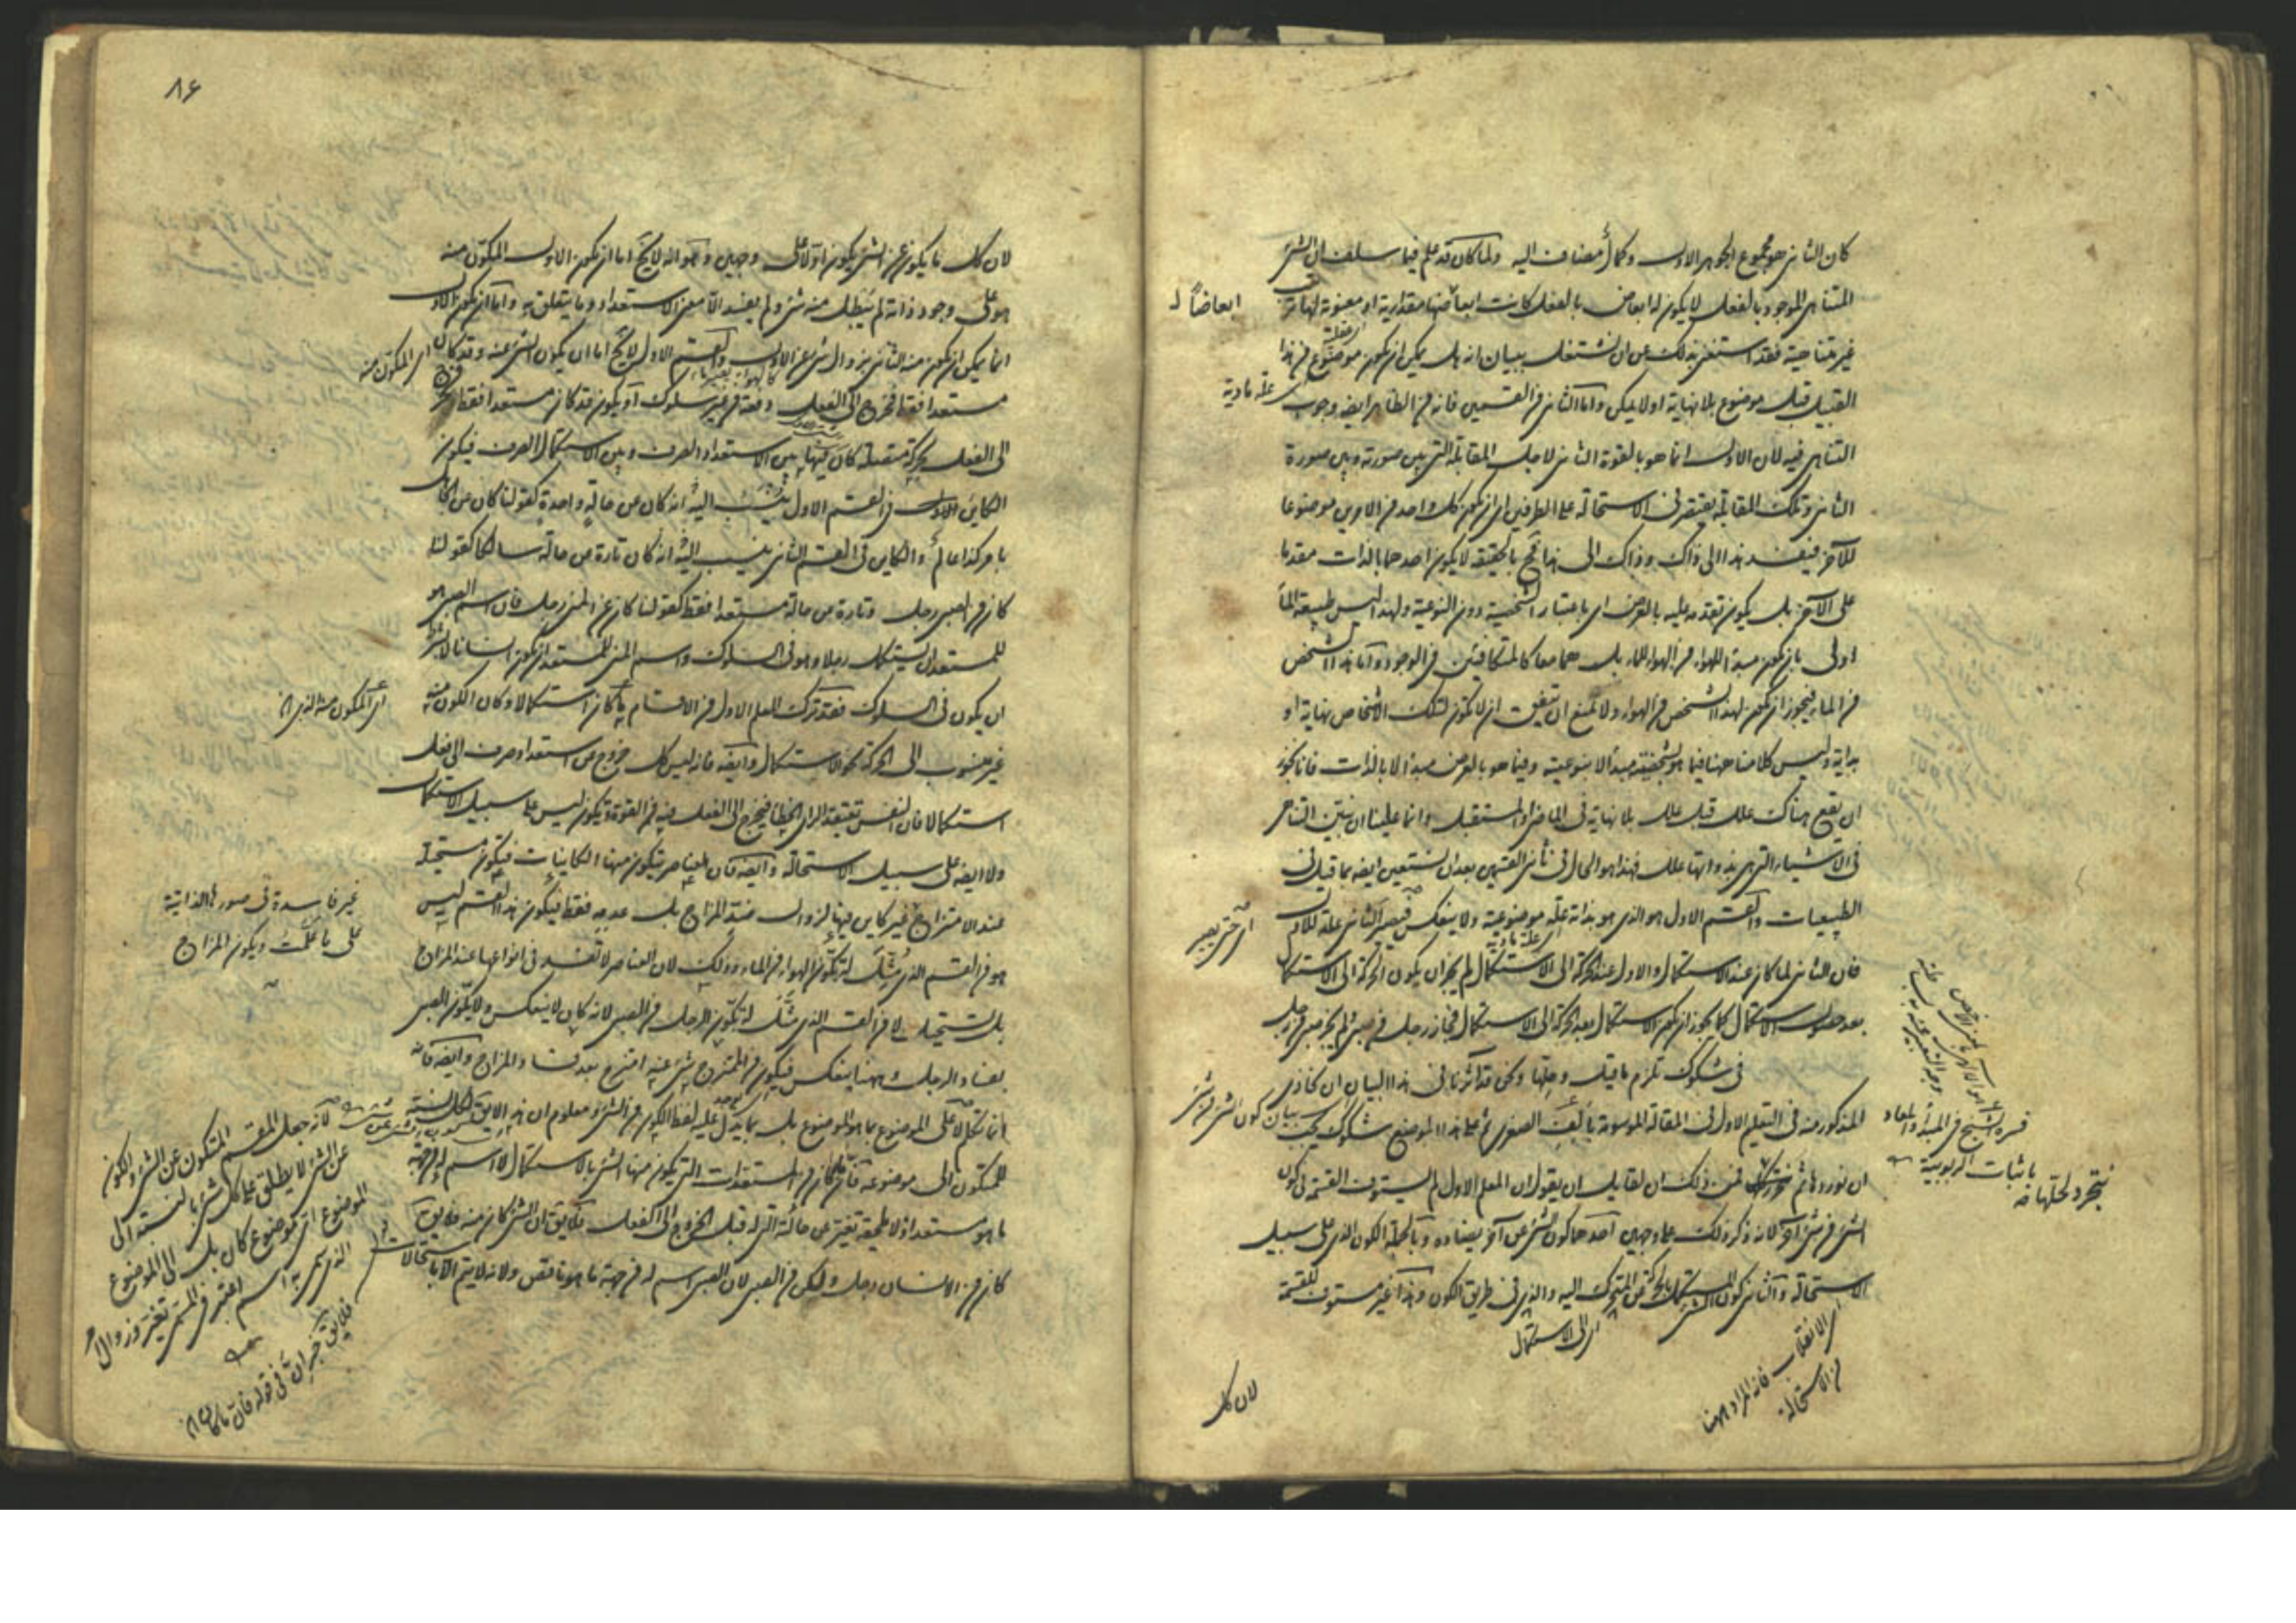 كان الثانى هو مجموع الجوهر الاول وكمال مضاف اليه ولما كان قد علم فيما سلف ان الشئ
المتناهى الموجود بالفعل لا يكون له ابعاض بالفعل كانت ابعاضها مقدارية او معنوية لها ترتيب
غير متناهية فقد استغنى بذلك عن ان نشتغل ببيان انه هل يمكن ان يكون موضوع فى هذا
القبيل قبل موضوع بلا نهاية اولا يمكن واما الثانى من القسمين فانه من الظاهر ايضه وجوب
التناهى فيه لان الاول انما هو بالقوة الثانى لاجل المقابلة التى بين صورته وبين صورة
الثانى وتلك المقابلة يقتصر فى الاستحالة على الطرفين اى ان يكون كل واحد من الامرين موضوعا
للآخر فيفسد هذا الى ذاك وذاك الى هذا فح بالحقيقة لا يكون احدهما بالذات مقدما
على الآخر بل يكون تقدمه عليه بالعرض اى باعتبار الشخصية دون النوعية ولهذا ليس طبيعة الماء
اولى بان يكون مبدأ للهواء من الهواء للماء بل هما معا كالمتكافئين فى الوجود واما هذا الشخص
من الماء فيجوز ان يكون لهذا الشخص من الهواء ولا نمنع ان يتفق ان لا يكون لتلك الاشخاص نهاية او
بداية وليس كلامنا ههنا فيما هو بشخصيته مبدأ لا بنوعيته وفيما هو بالعرض مبدأ لا بالذات فانا نجوز
ان يقع هناك علل قبل علل بلا نهاية فى الماضى والمستقبل وانما علينا ان نبين التناهى
فى الاشياء التى هى بذواتها علل فهذا هو الحال فى ثانى القسمين بعد ان نستعين ايضه بما قيل فى
الطبيعيات والقسم الاول هو الذى هو بذاته علة موضوعية ولا ينعكس فيصير الثانى علة للاول
فان الثانى لما كان عند الاستكمال والاول عند الحركة الى الاستكمال لم يجز ان يكون الحركة الى الاستكمال
بعد حصول الاستكمال كما يجوز ان يكون الاستكمال بعد الحركة الى الاستكمال فجاز رجل من صبى ولم يجز صبى من رجل
فى شكوك تلزم ما قيل وحلها ونحن قد آثرنا فى هذا البيان ان نحاذى
المذكور منه فى التعليم الاول فى المقالة الموسومة بالف الصغرى ثم على هذا الموضع شكوك يجب
ان نوردها ثم نحلها فمن ذلك ان لقايل ان يقول ان المعلم الاول لم يستوف القسمة فى كون
الشئ من شئ آخر لانه ذكر ذلك على وجهين احدهما كون الشئ عن آخر يضاده وبالجملة الكون الذى على سبيل
الاستحالة والثانى كون المستكمل بالحركة من المتحرك اليه والذى فى طريق الكون وهذا غير مستوف للقسمة
لان كل
ابعاضا
علة مادية
بيان كون الشئ من شئ
اى الى الاستكمال
اى الانقلاب فانه المراد ههنا
من الاستحالة
٨۶
لان كل ما يكون عن الشئ يكون اولا على وجهين وهو انه لا يخ اما ان يكون الاول المكون منه
هو على وجود ذاته لم يبطل منه شئ ولم يفسد الا معنى الاستعداد وما يتعلق به واما ان يكون الاول
انما يمكن ان يكون منه الثانى بزوال شئ عن الاول والقسم الاول لا يخ اما ان يكون الشئ عنه وقد كان
مستعدا فقط فخرج الى الفعل دفعة من غير سلوك او يكون قد كان مستعدا فقط فخرج
الى الفعل بحركة متصلة كان فيها بين الاستعداد الصرف وبين الاستكمال الصرف فيكون
الكاين الاول فى القسم الاول ينسب اليه انه كان من حالة واحدة كقولنا كان من الجاهل
بامر كذا عالم والكاين فى القسم الثانى ينسب اليه انه كان تارة من حالة سالكا كقولنا
كان من الصبى رجل وتارة من حالة مستعدا فقط كقولنا كان من المنى رجل فان اسم الصبى هو
للمستعد ان يستكمل رجلا وهو فى السلوك واسم المنى للمستعد ان يكون انسانا لا بشرط
ان يكون فى السلوك فقد ترك المعلم الاول من الاقسام ما كان استكمالا وكان الكون منه
غير منسوب الى الحركة نحو الاستكمال وايضه فانه ليس كل خروج من استعداد صرف الى فعل
استكمالا فان النفس تعتقد الراى الخطا فيخرج الى الفعل فيه من القوة ويكون ليس على سبيل الاستكمال
ولا ايضه على سبيل الاستحالة وايضه فان العناصر يتكون منها الكاينات فيكون مستحيلة
عند الامتزاج غير كاين فيها لزوال ضد المزاج بل عدمه فقط فيكون هذا القسم ليس
هو من القسم الذى مثل له بكون الهواء من الماء وذلك لان العناصر لا تفسد فى انواعها عند المزاج
بل تستحيل ولا من القسم الذى مثل له بكون الرجل من الصبى لانه كان لا ينعكس ولا يتكون الصبى
بفساد الرجل وههنا ينعكس فيكون من الممتزج شئ عنه امتزج بعد فساد المزاج وايضه فانه
انما تكلم على الموضوع بما هو الموضوع بل بما يدل عليه لفظ الكون من الشئ ومعلوم ان هذا لا يق لكل نسبة
للمتكون الى موضوعه فانه ما كان من المستعدات التى يكون منها الشئ بالاستكمال لا اسم له من جهة
ما هو مستعد اذ لا يلحقه تغير عن حالته التى له قبل الخروج الى الفعل فلا يق ان الشئ كان منه فلا يق
كان من الانسان رجل ولكن من الصبى لان الصبى اسم له من جهة ما هو ناقص ولانه لا يتم الا باستحالات
اى المكون منه
غير فاسدة فى صورها الذاتية
على ما علمت ويكون المزاج
لانه جعل المقسم المتكون عن الشئ والكون
عن الشئ لا يطلق على كل شئ بالنسبة الى
الموضوع اى موضوع كان بل الى الموضوع
الذى سمى به اسم اعتبر فى المسمى تغير وزوال امر
فلا يق خبر ان فى قوله فان ما كان